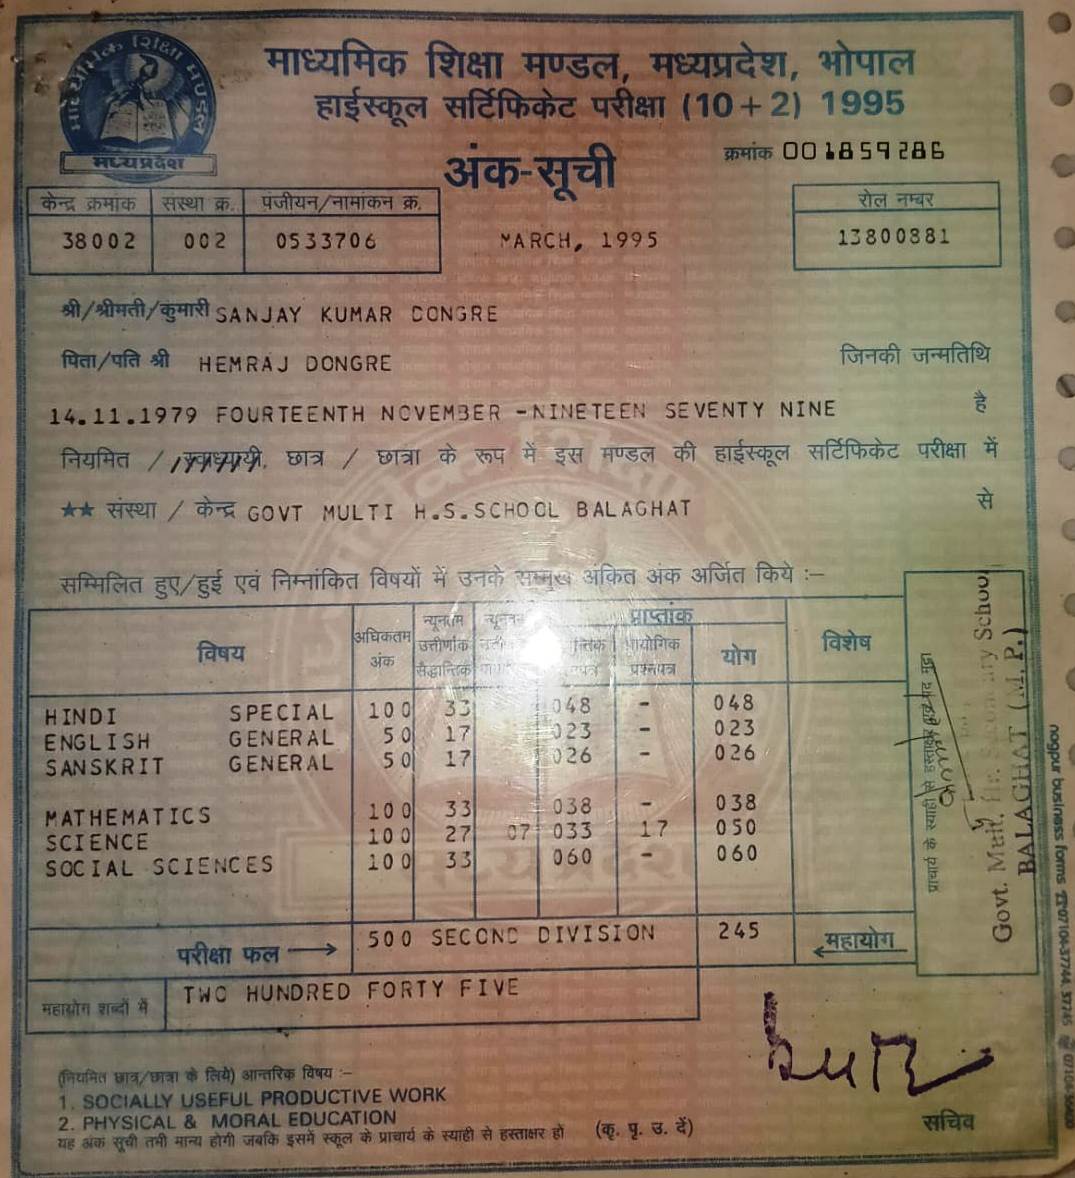 माध्यमिक शिक्षा मण्डल, मध्यप्रदेश, भोपाल
हाईस्कूल सर्टिफिकेट परीक्षा (10+2) 1995
मध्यप्रदेश
अंक-सूची
क्रमांक 001859286
केन्द्र क्रमांक संस्था क्र. पंजीयन/नामांकन क्र. रोल नम्बर
38002 002 0533706 MARCH, 1995 13800881
श्री/श्रीमती/कुमारी SANJAY KUMAR DONGRE
पिता/पति श्री HEMRAJ DONGRE जिनकी जन्मतिथि
14.11.1979 FOURTEENTH NOVEMBER -NINETEEN SEVENTY NINE है
नियमित / स्वाध्यायी, छात्र / छात्रा के रूप में इस मण्डल की हाईस्कूल सर्टिफिकेट परीक्षा में
★★ संस्था / केन्द्र GOVT MULTI H.S.SCHOOL BALAGHAT से
सम्मिलित हुए/हुई एवं निम्नांकित विषयों में उनके सम्मुख अंकित अंक अर्जित किये :–
विषय अधिकतम अंक न्यूनतम उत्तीर्णांक सैद्धान्तिक प्राप्तांक प्रायोगिक प्रश्नपत्र योग विशेष
HINDI SPECIAL 100 33 048 - 048
ENGLISH GENERAL 50 17 023 - 023
SANSKRIT GENERAL 50 17 026 - 026
MATHEMATICS 100 33 038 - 038
SCIENCE 100 27 07 033 17 050
SOCIAL SCIENCES 100 33 060 - 060
परीक्षा फल → 500 SECOND DIVISION 245 ← महायोग
महायोग शब्दों में TWO HUNDRED FORTY FIVE
(नियमित छात्र/छात्रा के लिये) आन्तरिक विषय :–
1. SOCIALLY USEFUL PRODUCTIVE WORK
2. PHYSICAL & MORAL EDUCATION
यह अंक सूची तभी मान्य होगी जबकि इसमें स्कूल के प्राचार्य के स्याही से हस्ताक्षर हो (कृ. पृ. उ. दें)
सचिव
प्राचार्य के स्याही से हस्ताक्षर
Govt. Mult. School
BALAGHAT (M.P.)
nagpur business forms